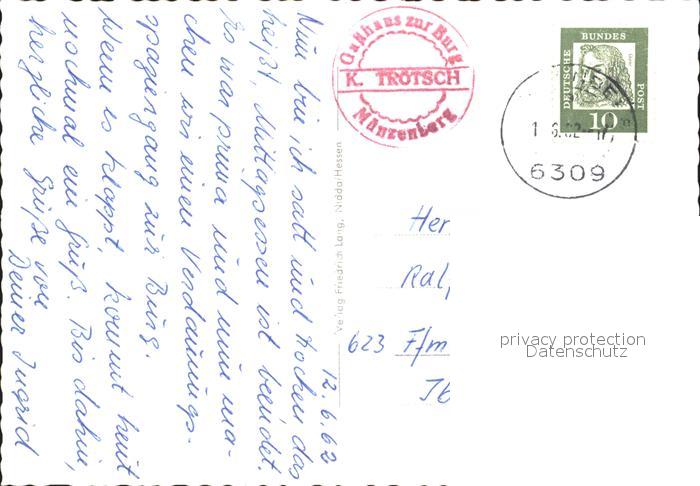 12.6.62
Nun bin ich satt und trocken das
heißt, Mittagessen ist beendet.
Es war prima und nun ma-
chen wir einen Verdauungs-
spaziergang zur Burg.
Wenn es klappt, kommt heut
nochmal ein Gruß. Bis dahin,
herzliche Grüße von
Deiner Ingrid
Verlag Friedrich Lang, Nidda/Hessen
Gasthaus zur Burg
K. TROTSCH
Münzenberg
DEUTSCHE
BUNDES
POST
10
6309
Her
Ral
623 F/m
privacy protection
Datenschutz